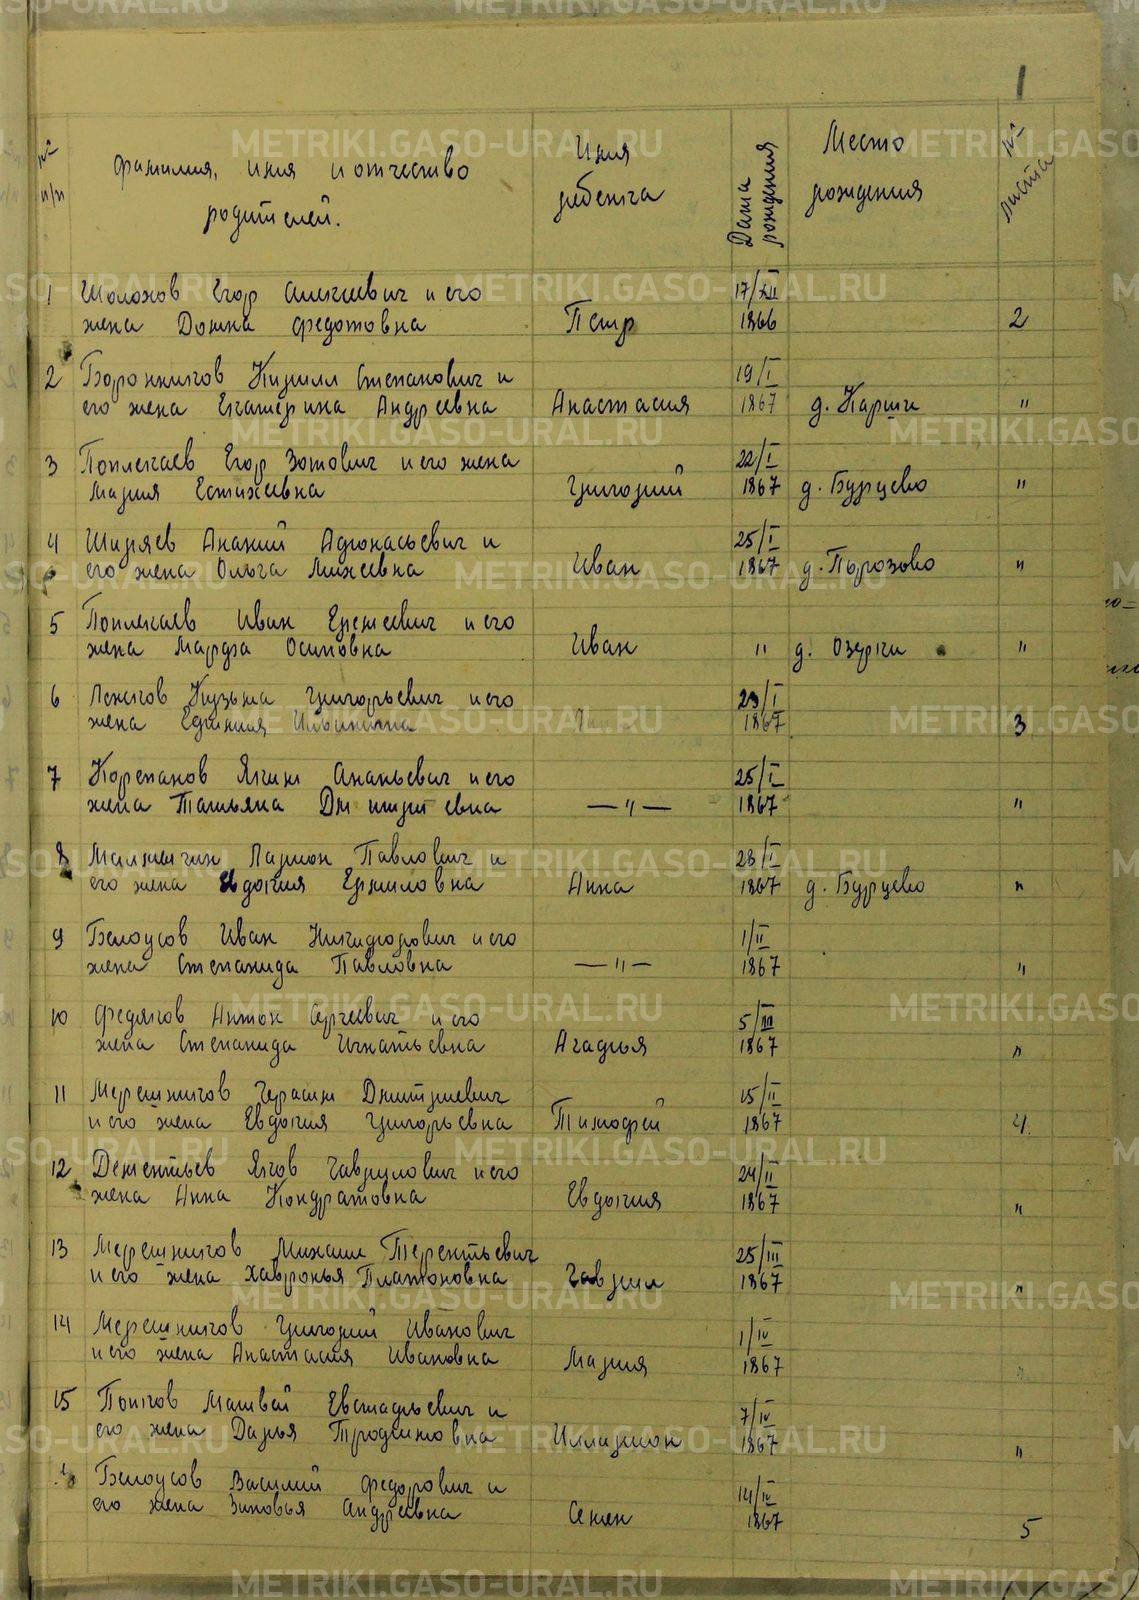 1
№ п/п
Фамилия, имя и отчество родителей.
Имя ребенка
Дата рождения
Место рождения
№ листа
1 Шолохов Егор Алексеевич и его 17/XII
жена Домна Федотовна Петр 1866 2
2 Боронников Кирилл Степанович и 19/I
его жена Екатерина Андреевна Анастасия 1867 д. Карши "
3 Поплекаев Егор Зотович и его жена 22/I
Мария Естихеевна Григорий 1867 д. Бурцево "
4 Ширяев Ананий Афонасьевич и 25/I
его жена Ольга Михеевна Иван 1867 д. Порозово "
5 Поплекаев Иван Еремеевич и его
жена Марфа Осиповна Иван " д. Озерки "
6 Кузьма Григорьевич и его 23/I
жена 1867 3
7 Корепанов Яким Ананьевич и его 25/I
жена Татьяна Дмитриевна — " — 1867 "
8 Малмыгин Ларион Павлович и 28/I
его жена Евдокия Ермиловна Анна 1867 д. Бурцево "
9 Белоусов Иван Никифорович и его 1/II
жена Степанида Павловна — " — 1867 "
10 Федяков Антон Сергеевич и его 5/III
жена Степанида Игнатьевна Агафья 1867 "
11 Мерешников Герасим Дмитриевич 15/II
и его жена Евдокия Григорьевна Тимофей 1867 4
12 Дементьев Яков Гаврилович и его 24/II
жена Анна Кондратовна Евдокия 1867 "
13 Мерешников Михаил Терентьевич 25/III
и его жена Хавронья Платоновна Гаврил 1867 "
14 Мерешников Григорий Иванович 1/IV
и его жена Анастасия Ивановна Мария 1867 "
15 Попков Матвей Евстафьевич и 7/IV
его жена Дарья Трофимовна Илларион 1867 "
Белоусов Василий Федорович и 14/IV
его жена Зиновья Андреевна Семен 1867 5
METRIKI.GASO-URAL.RU